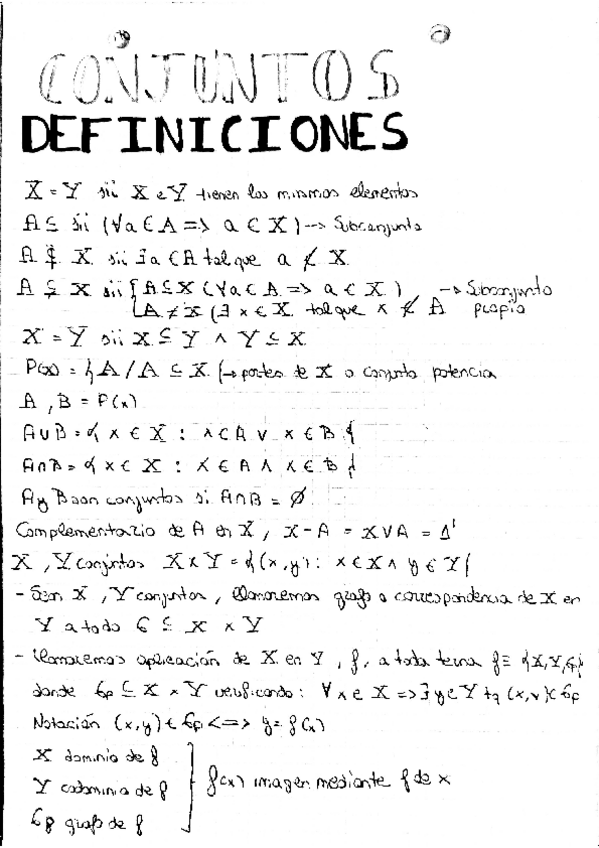 CONJUNTOS
DEFINICIONES
X = Y sii X e Y tienen los mismos elementos
A ⊆ sii (∀a ∈ A => a ∈ X) --> Subconjunto
A ⊈ X sii ∃a ∈ A tal que a ∉ X
A ⊊ X sii { A ⊆ X (∀a ∈ A => a ∈ X) --> Subconjunto
A ≠ X (∃ x ∈ X tal que x ∉ A propio
X = Y sii X ⊆ Y ∧ Y ⊆ X
P(x) = { A / A ⊆ X { --> partes de X o conjunto potencia
A, B = P(x)
A ∪ B = { x ∈ X : x ∈ A ∨ x ∈ B }
A ∩ B = { x ∈ X : x ∈ A ∧ x ∈ B }
A y B son conjuntos si A ∩ B = ∅
Complementario de A en X, X - A = X \ A = A'
X, Y conjntos X x Y = { (x, y) : x ∈ X ∧ y ∈ Y {
- Sean X, Y conjuntos, llamaremos grafo o correspondencia de X en
Y a todo G ⊆ X x Y
- Llamaremos aplicación de X en Y, f, a toda terna f ≡ {X, Y, Gf}
donde Gf ⊆ X x Y verificando: ∀x ∈ X => ∃ y ∈ Y tq (x, y) ∈ Gf
Notación (x, y) ∈ Gf <=> y = f(x)
X dominio de f
Y codominio de f } f(x) imagen mediante f de x
Gf grafo de f